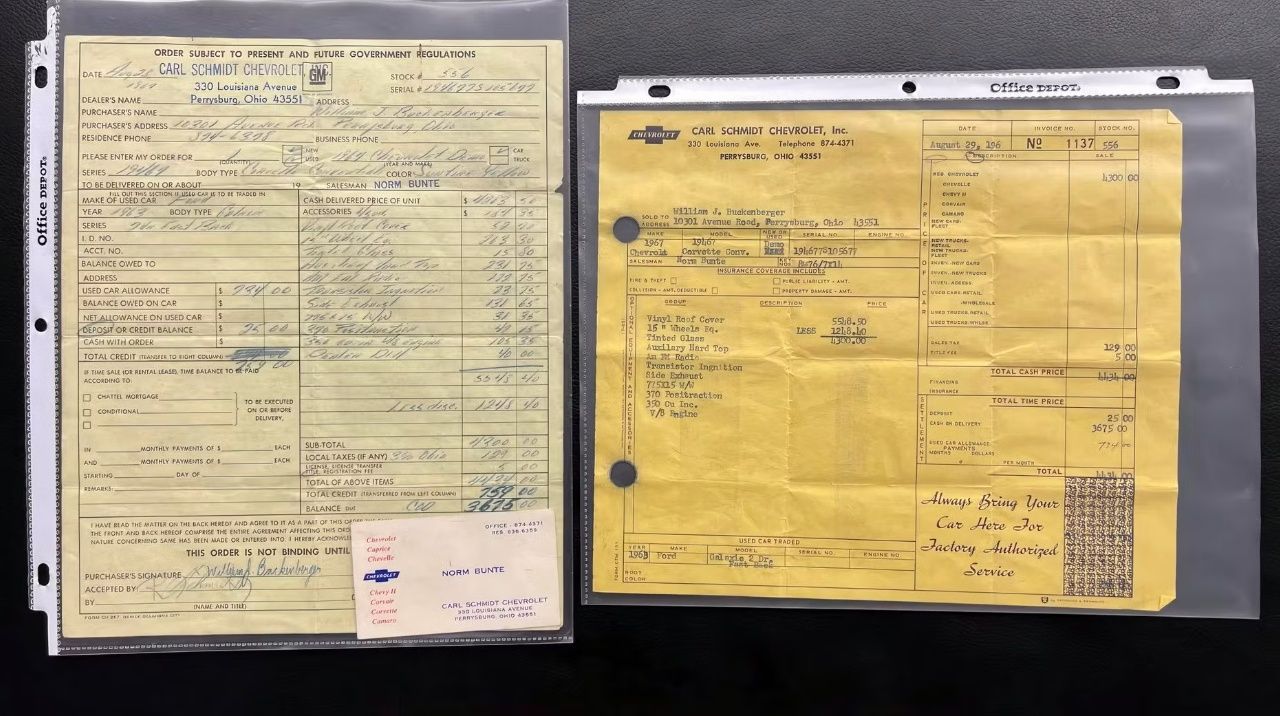 Office DEPOT.
ORDER SUBJECT TO PRESENT AND FUTURE GOVERNMENT REGULATIONS
DATE
CARL SCHMIDT CHEVROLET, INC.
GM
330 Louisiana Avenue
Perrysburg, Ohio 43551
STOCK # 556
SERIAL #
DEALER'S NAME
ADDRESS
PURCHASER'S NAME William J. Buckenberger
PURCHASER'S ADDRESS 10301 Avenue Perrysburg Ohio
RESIDENCE PHONE 874-6378 BUSINESS PHONE
PLEASE ENTER MY ORDER FOR 1 (QUANTITY) NEW USED (YEAR AND MAKE) Demo CAR TRUCK
SERIES 19467 BODY TYPE Corvette COLOR Sunfire Yellow
TO BE DELIVERED ON OR ABOUT 19 SALESMAN NORM BUNTE
FILL OUT THIS SECTION IF USED CAR IS TO BE TRADED IN
MAKE OF USED CAR Ford
YEAR 1963 BODY TYPE
SERIES
I. D. NO.
ACCT. NO.
BALANCE OWED TO
ADDRESS
USED CAR ALLOWANCE $ 734 00
BALANCE OWED ON CAR
NET ALLOWANCE ON USED CAR $
DEPOSIT OR CREDIT BALANCE $ 25 00
CASH WITH ORDER $
TOTAL CREDIT (TRANSFER TO RIGHT COLUMN)
IF TIME SALE (OR RENTAL LEASE), TIME BALANCE TO BE PAID
ACCORDING TO:
CHATTEL MORTGAGE
CONDITIONAL
TO BE EXECUTED
ON OR BEFORE
DELIVERY,
IN MONTHLY PAYMENTS OF $ EACH
AND MONTHLY PAYMENTS OF $ EACH
STARTING DAY OF
REMARKS:
CASH DELIVERED PRICE OF UNIT $
ACCESSORIES
Vinyl Roof Cover
Tinted Glass
Auxiliary Hard Top
AM FM Radio
Transistor Ignition
Side Exhaust 131 65
775 x 15 W/W
Positraction
350 cu in V/8 engine 105 35
40 00
5548 40
Less disc. 1248 40
SUB-TOTAL 4300 00
LOCAL TAXES (IF ANY) 3% Ohio 129 00
LICENSE, LICENSE TRANSFER
TITLE, REGISTRATION FEE 5 00
TOTAL OF ABOVE ITEMS 4434 00
TOTAL CREDIT (TRANSFERRED FROM LEFT COLUMN) 759 00
BALANCE DUE COD 3675 00
I HAVE READ THE MATTER ON THE BACK HEREOF AND AGREE TO IT AS A PART OF THIS ORDER
THE FRONT AND BACK HEREOF COMPRISE THE ENTIRE AGREEMENT AFFECTING THIS
NATURE CONCERNING SAME HAS BEEN MADE OR ENTERED INTO. I HEREBY
THIS ORDER IS NOT BINDING UNTIL
PURCHASER'S SIGNATURE X William Buckenberger
ACCEPTED BY:
BY
(NAME AND TITLE)
OFFICE - 874-4371
RES. 836-6359
Chevrolet
Caprice
Chevelle
CHEVROLET
Chevy II
Corvair
Corvette
Camaro
NORM BUNTE
CARL SCHMIDT CHEVROLET
330 LOUISIANA AVENUE
PERRYSBURG, OHIO 43551
Office DEPOT.
CHEVROLET
CARL SCHMIDT CHEVROLET, Inc.
330 Louisiana Ave. Telephone 874-4371
PERRYSBURG, OHIO 43551
DATE INVOICE NO. STOCK NO.
August 29, 196 No 1137 556
DESCRIPTION SALE
SOLD TO William J. Buckenberger
ADDRESS 10301 Avenue Road, Perrysburg, Ohio 43551
MAKE MODEL NEW OR USED SERIAL NO. ENGINE NO.
1967 19467 Demo
Chevrolt Corvette Conv. 194677S105677
SALESMAN Norm Bunte KEY NOS. 8K76/7T14
INSURANCE COVERAGE INCLUDES
FIRE & THEFT PUBLIC LIABILITY - AMT.
COLLISION - AMT. DEDUCTIBLE PROPERTY DAMAGE - AMT.
OPTIONAL EQUIPMENT AND ACCESSORIES
GROUP DESCRIPTION PRICE
Vinyl Roof Cover 5548.50
15 " Wheels Eq. LESS 1248.40
Tinted Glass 4300.00
Auxilary Hard Top
Am FM Radio
Transistor Ingnition
Side Exhaust
775X15 W/W
370 Positraction
350 Cu Inc.
V/8 Engine
USED CAR TRADED
YEAR MAKE MODEL SERIAL NO. ENGINE NO.
1963 Ford Galaxie 2 Dr.
Fast Back
BODY
COLOR
PRICE OF CAR
NEW CHEVROLET 4300 00
CHEVELLE
CHEVY II
CORVAIR
CAMARO
NEW CARS-
FLEET
NEW TRUCKS-
RETAIL
NEW TRUCKS-
FLEET
INVEN.-NEW CARS
INVEN.-NEW TRUCKS
INVEN.-ACCESS.
USED CARS-RETAIL
-WHOLESALE
USED TRUCKS-RETAIL
USED TRUCKS-WHLSE.
SALES TAX 129 00
TITLE FEE 5 00
TOTAL CASH PRICE 4434 00
FINANCING
INSURANCE
TOTAL TIME PRICE
SETTLEMENT
DEPOSIT 25 00
CASH ON DELIVERY 3675 00
USED CAR ALLOWANCE
PAYMENTS
MONTHS DOLLARS
@ PER MONTH
TOTAL 4434 00
Always Bring Your
Car Here For
Factory Authorized
Service